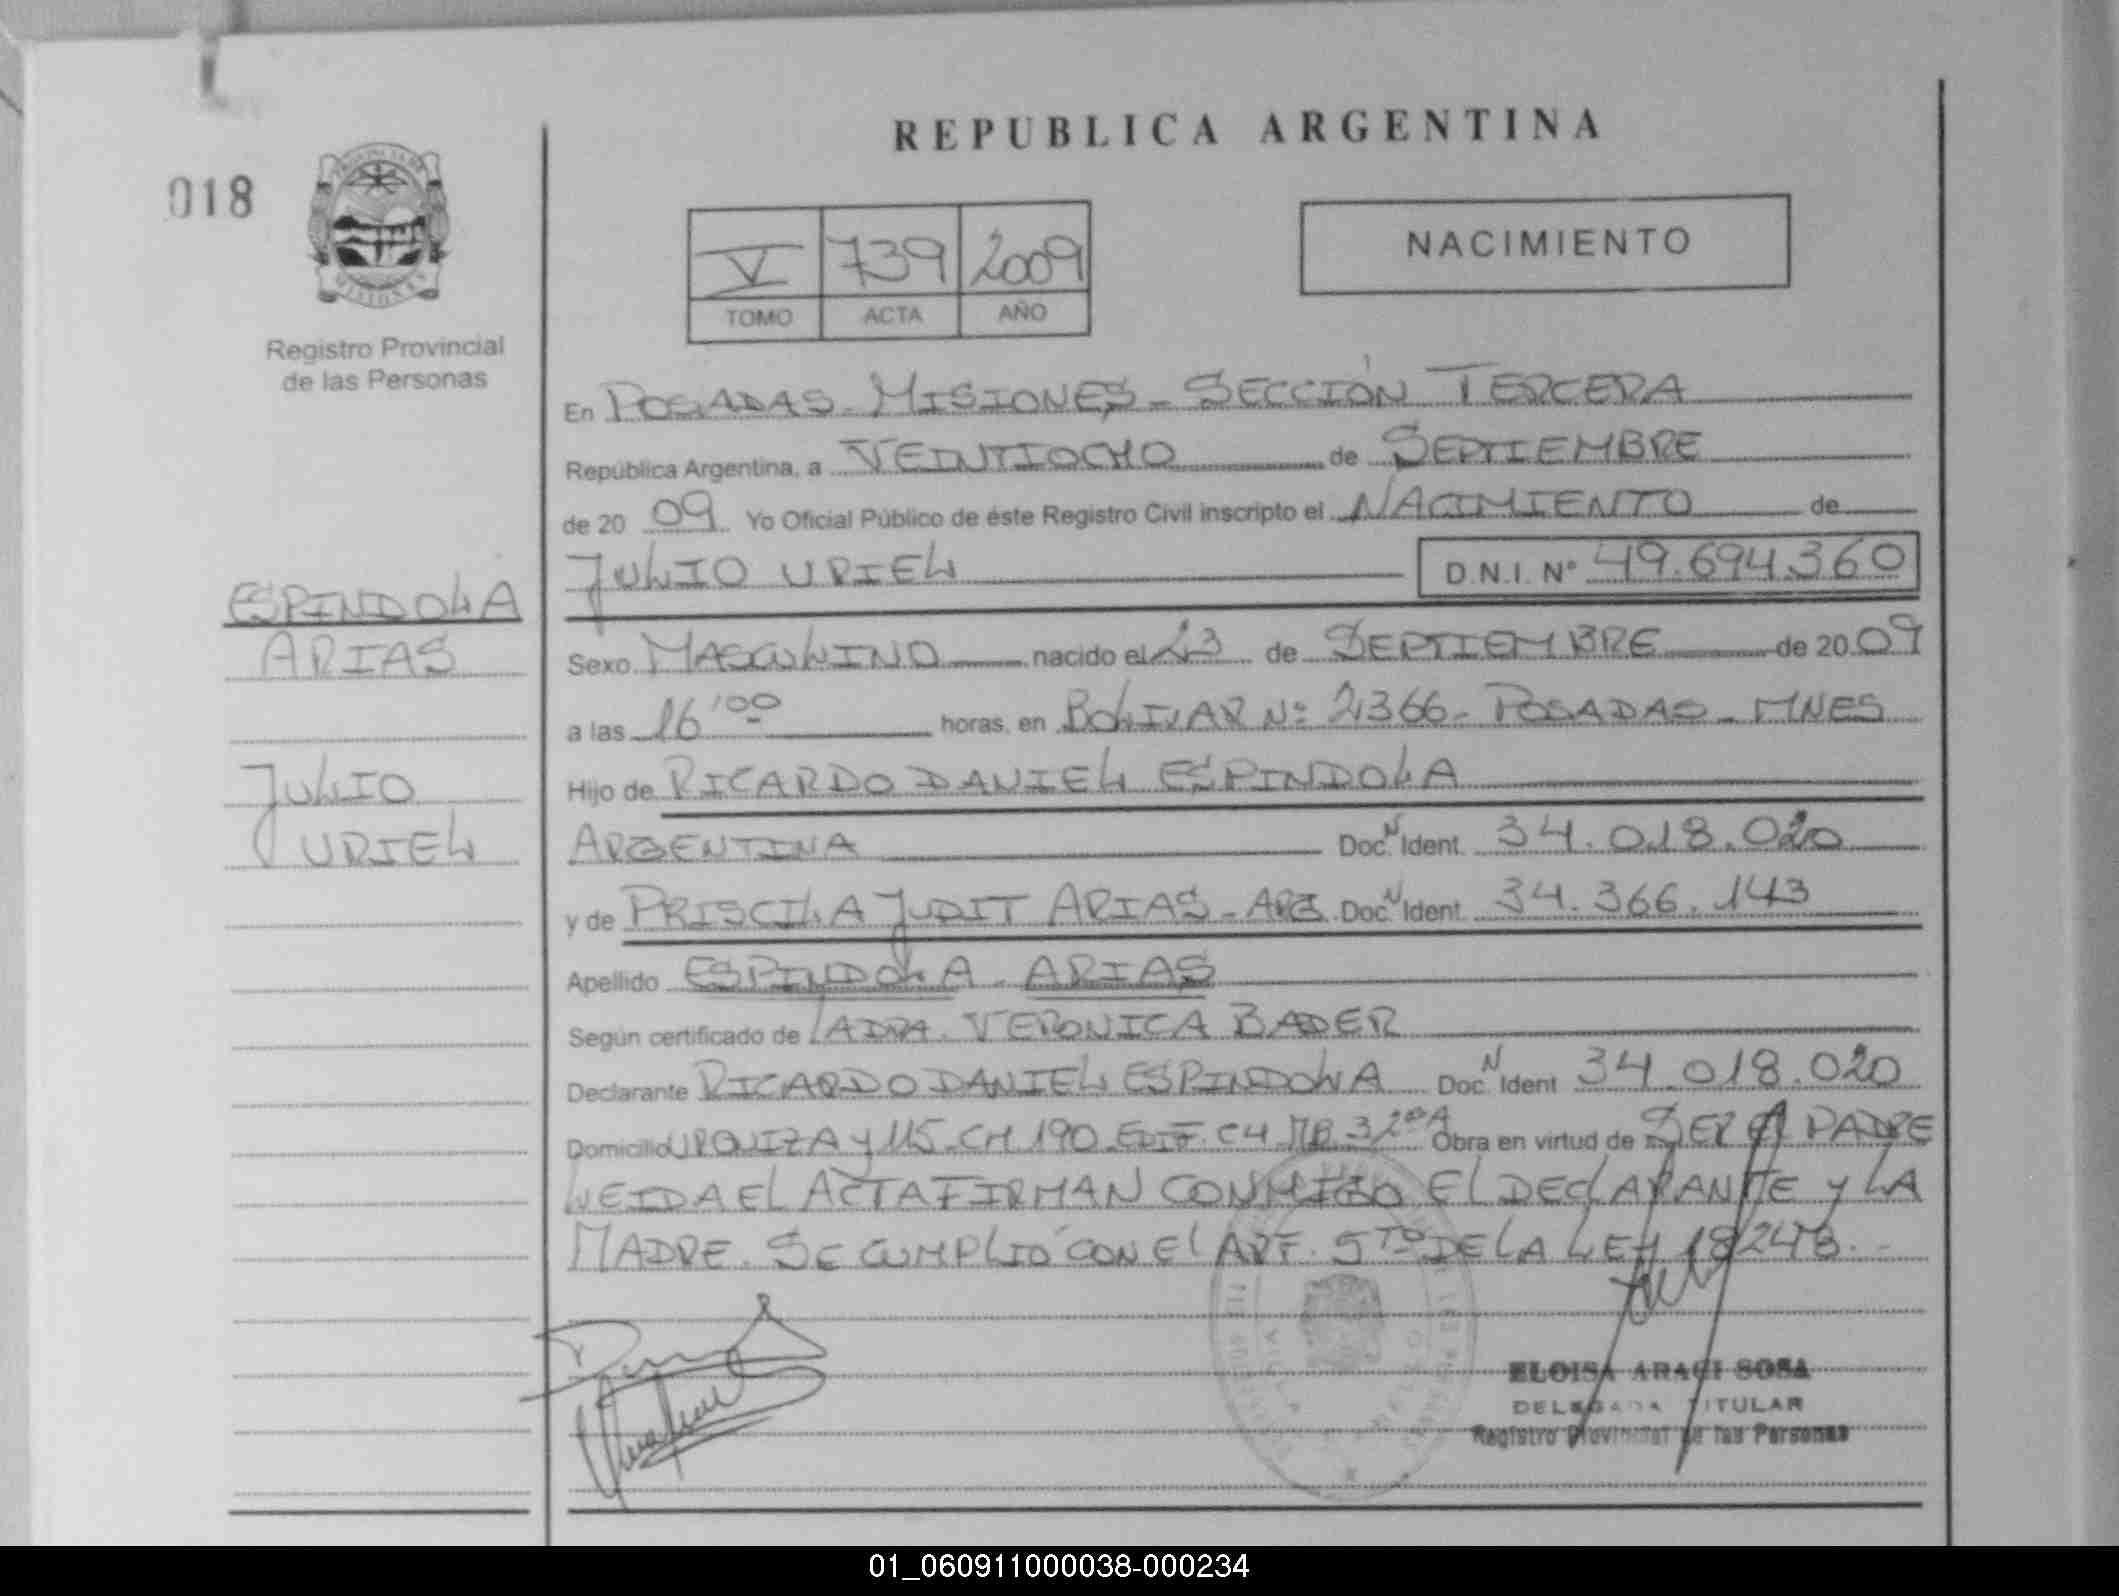 REPUBLICA ARGENTINA
018
V 739 2009
TOMO ACTA AÑO
NACIMIENTO
Registro Provincial
de las Personas
En POSADAS - MISIONES - SECCIÓN TERCERA
República Argentina, a VEINTIOCHO de SEPTIEMBRE
de 20 09 Yo Oficial Público de éste Registro Civil inscripto el NACIMIENTO de
JULIO URIEL D.N.I. N° 49.694.360
ESPINDOLA
ARIAS
JULIO
URIEL
Sexo MASCULINO nacido el 23 de SEPTIEMBRE de 20 09
a las 16'00 horas, en BOLIVAR N° 2366 - POSADAS - MNES
Hijo de RICARDO DANIEL ESPINDOLA
ARGENTINA Doc. N Ident. 34.018.020
y de PRISCILA JUDIT ARIAS - ARG Doc. N Ident. 34.366.143
Apellido ESPINDOLA - ARIAS
Según certificado de LA DRA. VERONICA BADER
Declarante RICARDO DANIEL ESPINDOLA Doc. N Ident 34.018.020
Domicilio URQUIZA y 115 - CH 190 - EDIF. C4 Obra en virtud de SER EL PADRE
LEIDA EL ACTA FIRMAN CONMIGO EL DECLARANTE y LA
MADRE. SE CUMPLIO CON EL ART. 5TO DE LA LEY 18248.-
ELOISA ARACI SOSA
DELEGADA TITULAR
Registro Provincial de las Personas
01_060911000038-000234